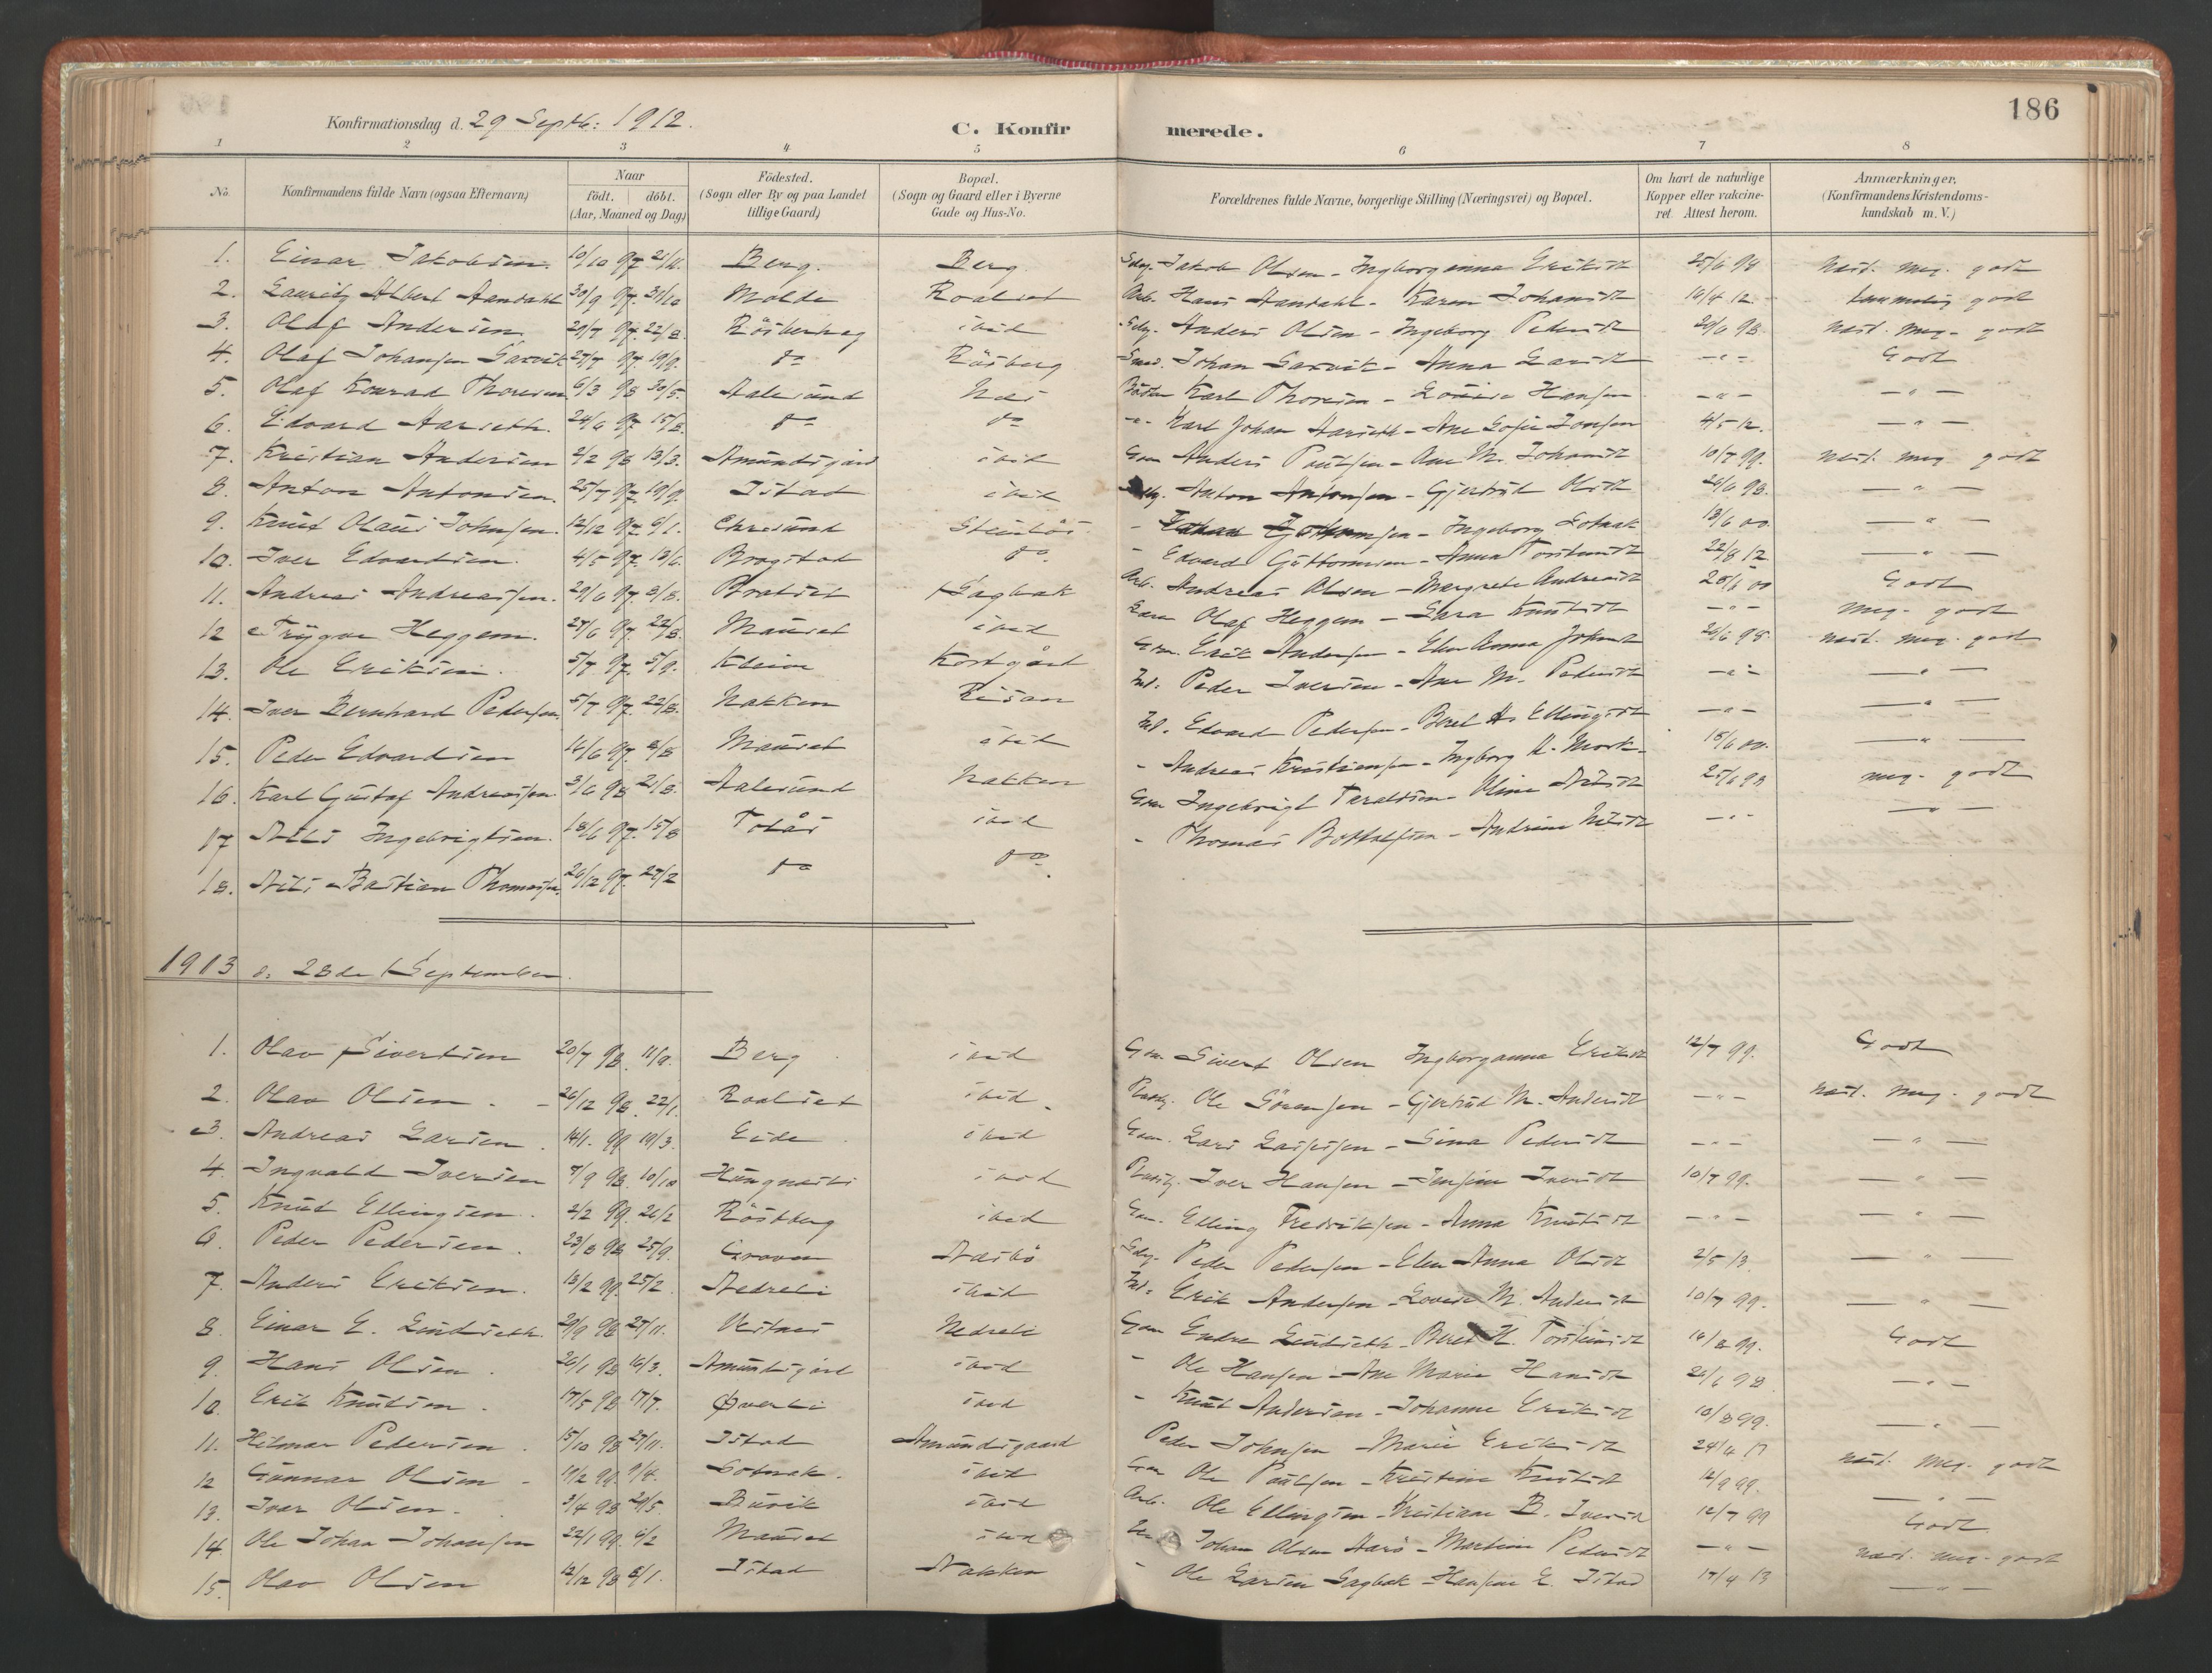 186
Konfirmationsdag d. 29 Septb: 1912.
C. Konfirmerede.
1 2 3 4 5 6 7 8
No. Konfirmandens fulde Navn (ogsaa Efternavn) Naar født. døbt. (Aar, Maaned og Dag) Fødested. (Sogn eller By og paa Landet tillige Gaard) Bopæl. (Sogn og Gaard eller i Byerne Gade og Hus-No. Forældrenes fulde Navne, borgerlige Stilling (Næringsvei) og Bopæl. Om havt de naturlige Kopper eller vakcineret. Attest herom. Anmærkninger. (Konfirmandens Kristendomskundskab m. V.)
1. Einar Jakobsen. 10/10 97 21/11. Berg. Berg. Jakob Olsen - Ingborganna Eriksdt 25/6 98 Næst. meg. godt
2. Lauritz Albert Aandahl 30/9 97. 31/10 Molde Roalset Arb. Hans Aandahl - Karen Johansdt 16/4 12. temmelig godt
3. Olaf Andersen 29/7 97. 22/8. Rösberhag ibid Anders Olsen - Ingeborg Pedersdt 20/6 98. næst. meg. godt
4. Olaf Johansen Garvik 27/7 97. 19/9. do Rösberg Smed. Johan Garvik - Anna Larsdt -"- Godt
5. Olaf Konrad Thoresen 6/3 98 30/5. Aalesund Nes Karl Thoresen - Louise Hansen -"- -"-
6. Edvard Harseth. 24/6 97 15/8. do do -"- Karl Johan Harseth - Ane Sofie Jonsen 4/5 12. -"-
7. Kristian Andersen 2/2 98 13/3. Amundsgård ibid Gm Anders Paulsen - Ane M. Johansdt 10/7 99. næst. meg. godt
8. Anton Antonsen. 25/7 97. 19/9. Istad ibid Anton Antonsen - Gjertrud Olsdt 26/6 98. -"-
9. Knut Olaus Johnsen. 12/12 97. 6/1. Chrsund Stenlös - Ingeborg Sotnak 13/6 00. -"-
10. Iver Edvardsen. 4/5 97. 13/6. Bragstad do - Edvard Guttormsen - Anna Torstensdt 22/8 12 -"-
11. Andreas Andreassen. 29/6 97. 8/8. Bratset Sagbak Arb. Andreas Olsen - Margrete Andreasdt 25/6 00 Godt
12 Trygve Heggem. 27/6 97. 22/8. Mauset ibid Olaf Heggem - Sara Knutsdt -"- meg. godt
13. Ole Eriksen. 5/7 97. 5/9. Kleive Kortgård Gm. Erik Andersen - Elen Anna Johnsdt 26/6 98 næst. meg. godt
14. Iver Bernhard Pedersen. 5/7 97. 22/8. Nakken Risan Ind. Peder Iversen - Ane M. Pedersdt -"- -"-
15. Peder Edvardsen 16/6 97. 8/8 Mauset ibid Ind. Edvard Pedersen - Beret A. Ellingsdt -"- -"-
16. Karl Gustaf Andreassen 3/6 98 21/8. Aalesund Nakken - Andreas Kristiansen - Ingborg K. Mork. 15/6 00. -"-
17 Nils Ingebrigtsen. 18/6 97. 15/8 Tolås ibid Gm Ingebrigt Teraldsen - Oline Nilsdt 25/6 98 meg. godt
18. Nils Bastian Thomassen. 26/12 97. 27/2 do do - Thomas Bottolfsen - Andrine Nilsdt -"- -"-
1913 d. 28de September.
1. Olav Sivertsen 20/7 98. 11/9. Berg ibid Gm. Sivert Olsen Ingborganna Eriksdt 12/7 99. Godt
2. Olav Olsen. 26/12 98. 22/1. Roalset ibid. Ole Sörensen - Gjertrud M. Andersdt -"- næst. meg. godt
3. Andreas Larsen. 14/1. 99 19/3. Eide ibid Gm. Lars - Sina Pedersdt -"- -"-
4. Ingvald Iversen 7/9 98. 10/10 Hungnes ibid Iver Hansen - Jensine Iversdt 10/7 99. -"-
5. Knut Ellingsen. 2/2 99. 26/2 Röstberg ibid Gm. Elling Fredriksen - Anna Knutsdt -"- -"-
6. Peder Pedersen. 23/8 98 25/9. Groven Næsbö Peder Pedersen - Elen Anna Olsdt 2/5 13. -"-
7. Anders Eriksen. 13/2 99. 25/2. Nedreli ibid Ind. Erik Andersen - Lovise M. Andersdt 10/7 99. -"-
8. Einar E. Lindseth. 29/9 98 27/11. Vestnes Nedreli Gm Endre Lindseth - Beret H. Torstensdt 14/8 99. Godt
9. Hans Olsen. 26/1 98 16/3. Amundsgård ibid - Ole Hansen - Ane Marie Hansdt 26/6 98. -"-
10. Erik Knutsen. 17/5 98 17/7. Øverli ibid - Knut Andersen - Johanne Eriksdt 10/8 99. -"-
11. Hilmar Pedersen. 15/10 98 27/11. Istad Amundsgaard Peder Johnsen - Marie Eriksdt næst. meg. godt
12 Gunnar Olsen Sotnak. ibid Gm Ole Paulsen - Kristine Knutsdt 12/9 99. -"-
13. Iver Olsen. 3/4 98 29/5. Buvik ibid Arb. Ole Ellingsen - Kristiane B. Iversdt 12/7 99 Godt
14. Ole Johan Johansen 22/1 99. Mauset ibid Johan Olsen Aarö - Martine Pedersdt -"- næst. meg. godt
15. Olav Olsen 12/12 98 8/1. Istad Nakken - Ole Larsen Sagbak - Hansine E. Istad 17/4 13 -"-